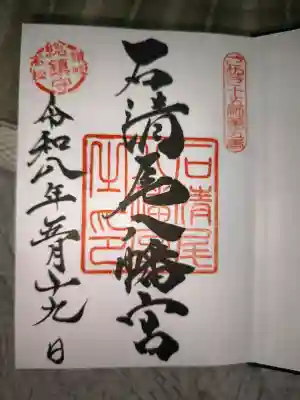 石清尾八幡宮
石清尾
八幡宮
之印
総鎮守
令和八年五月十九日